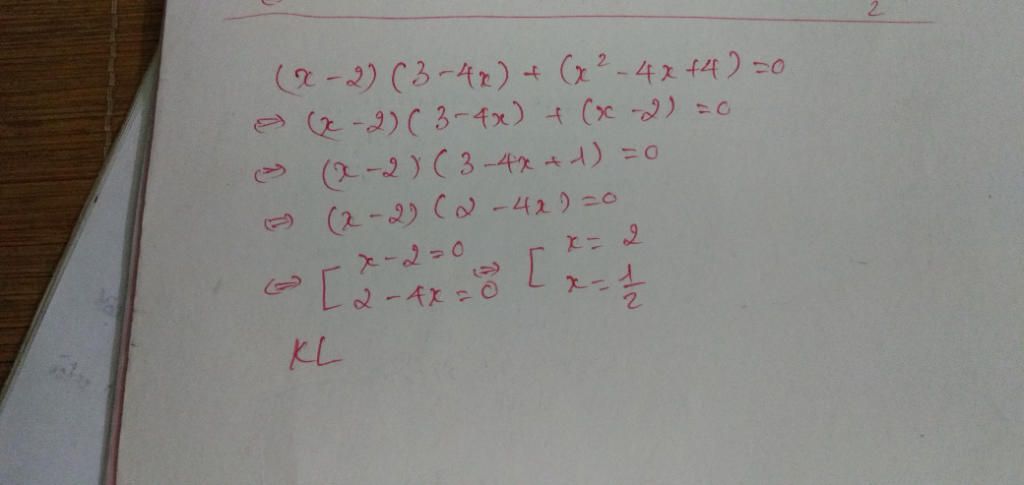 2
(x-2)(3-4x) + (x² - 4x + 4) = 0
⇔ (x-2)(3-4x) + (x-2) = 0
⇔ (x-2)(3-4x+1) = 0
⇔ (x-2)(2-4x) = 0
⇔ [ x-2=0 ; 2-4x=0 ⇔ [ x=2 ; x=1/2
KL